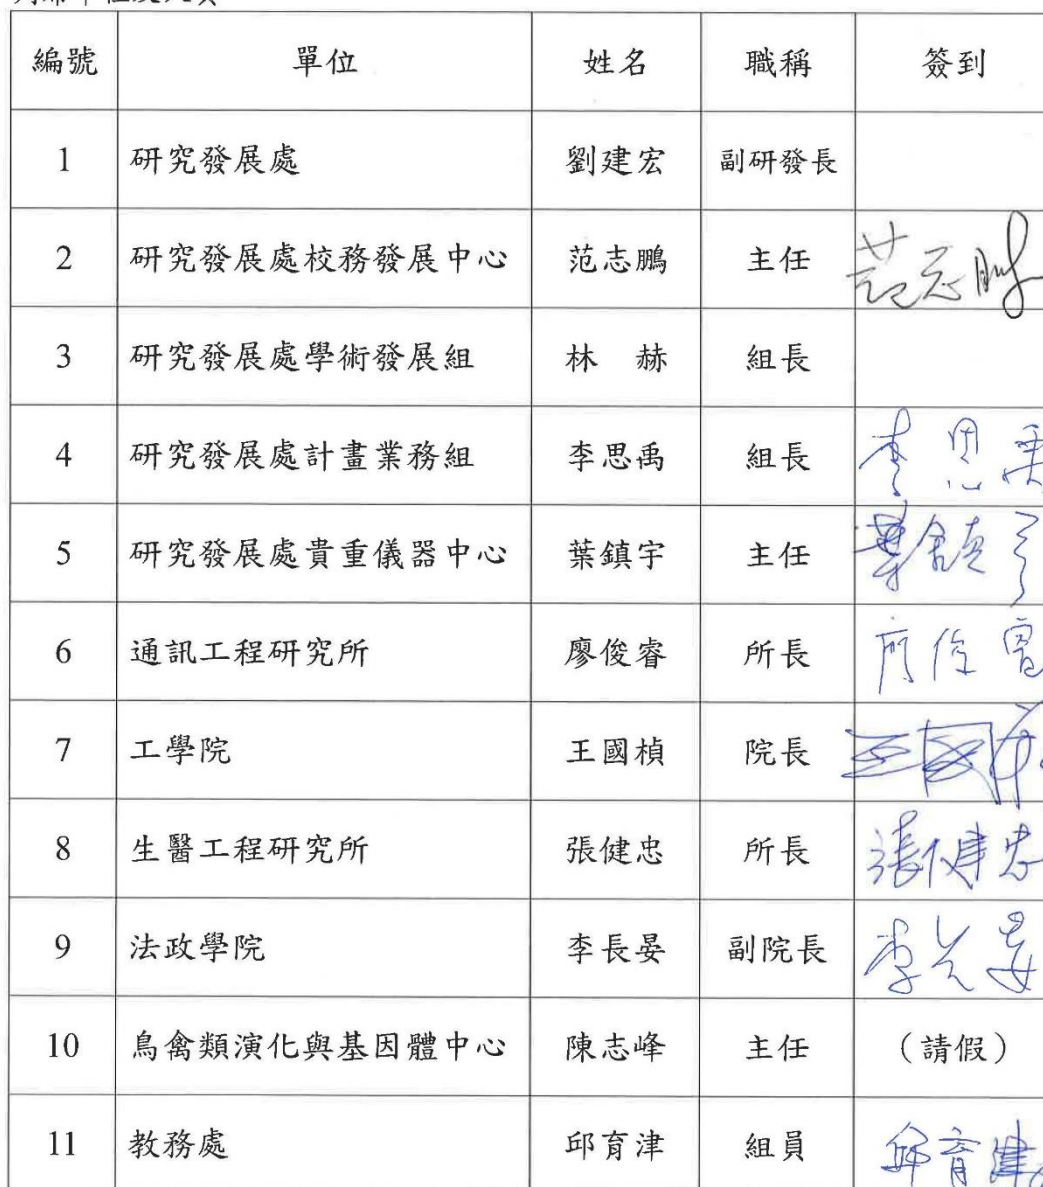 編號 單位 姓名 職稱 簽到
1 研究發展處 劉建宏 副研發長
2 研究發展處校務發展中心 范志鵬 主任 范志鵬
3 研究發展處學術發展組 林 赫 組長
4 研究發展處計畫業務組 李思禹 組長 李思禹
5 研究發展處貴重儀器中心 葉鎮宇 主任 葉鎮宇
6 通訊工程研究所 廖俊睿 所長 廖俊睿
7 工學院 王國楨 院長 王國楨
8 生醫工程研究所 張健忠 所長 張健忠
9 法政學院 李長晏 副院長 李長晏
10 鳥禽類演化與基因體中心 陳志峰 主任 （請假）
11 教務處 邱育津 組員 邱育津